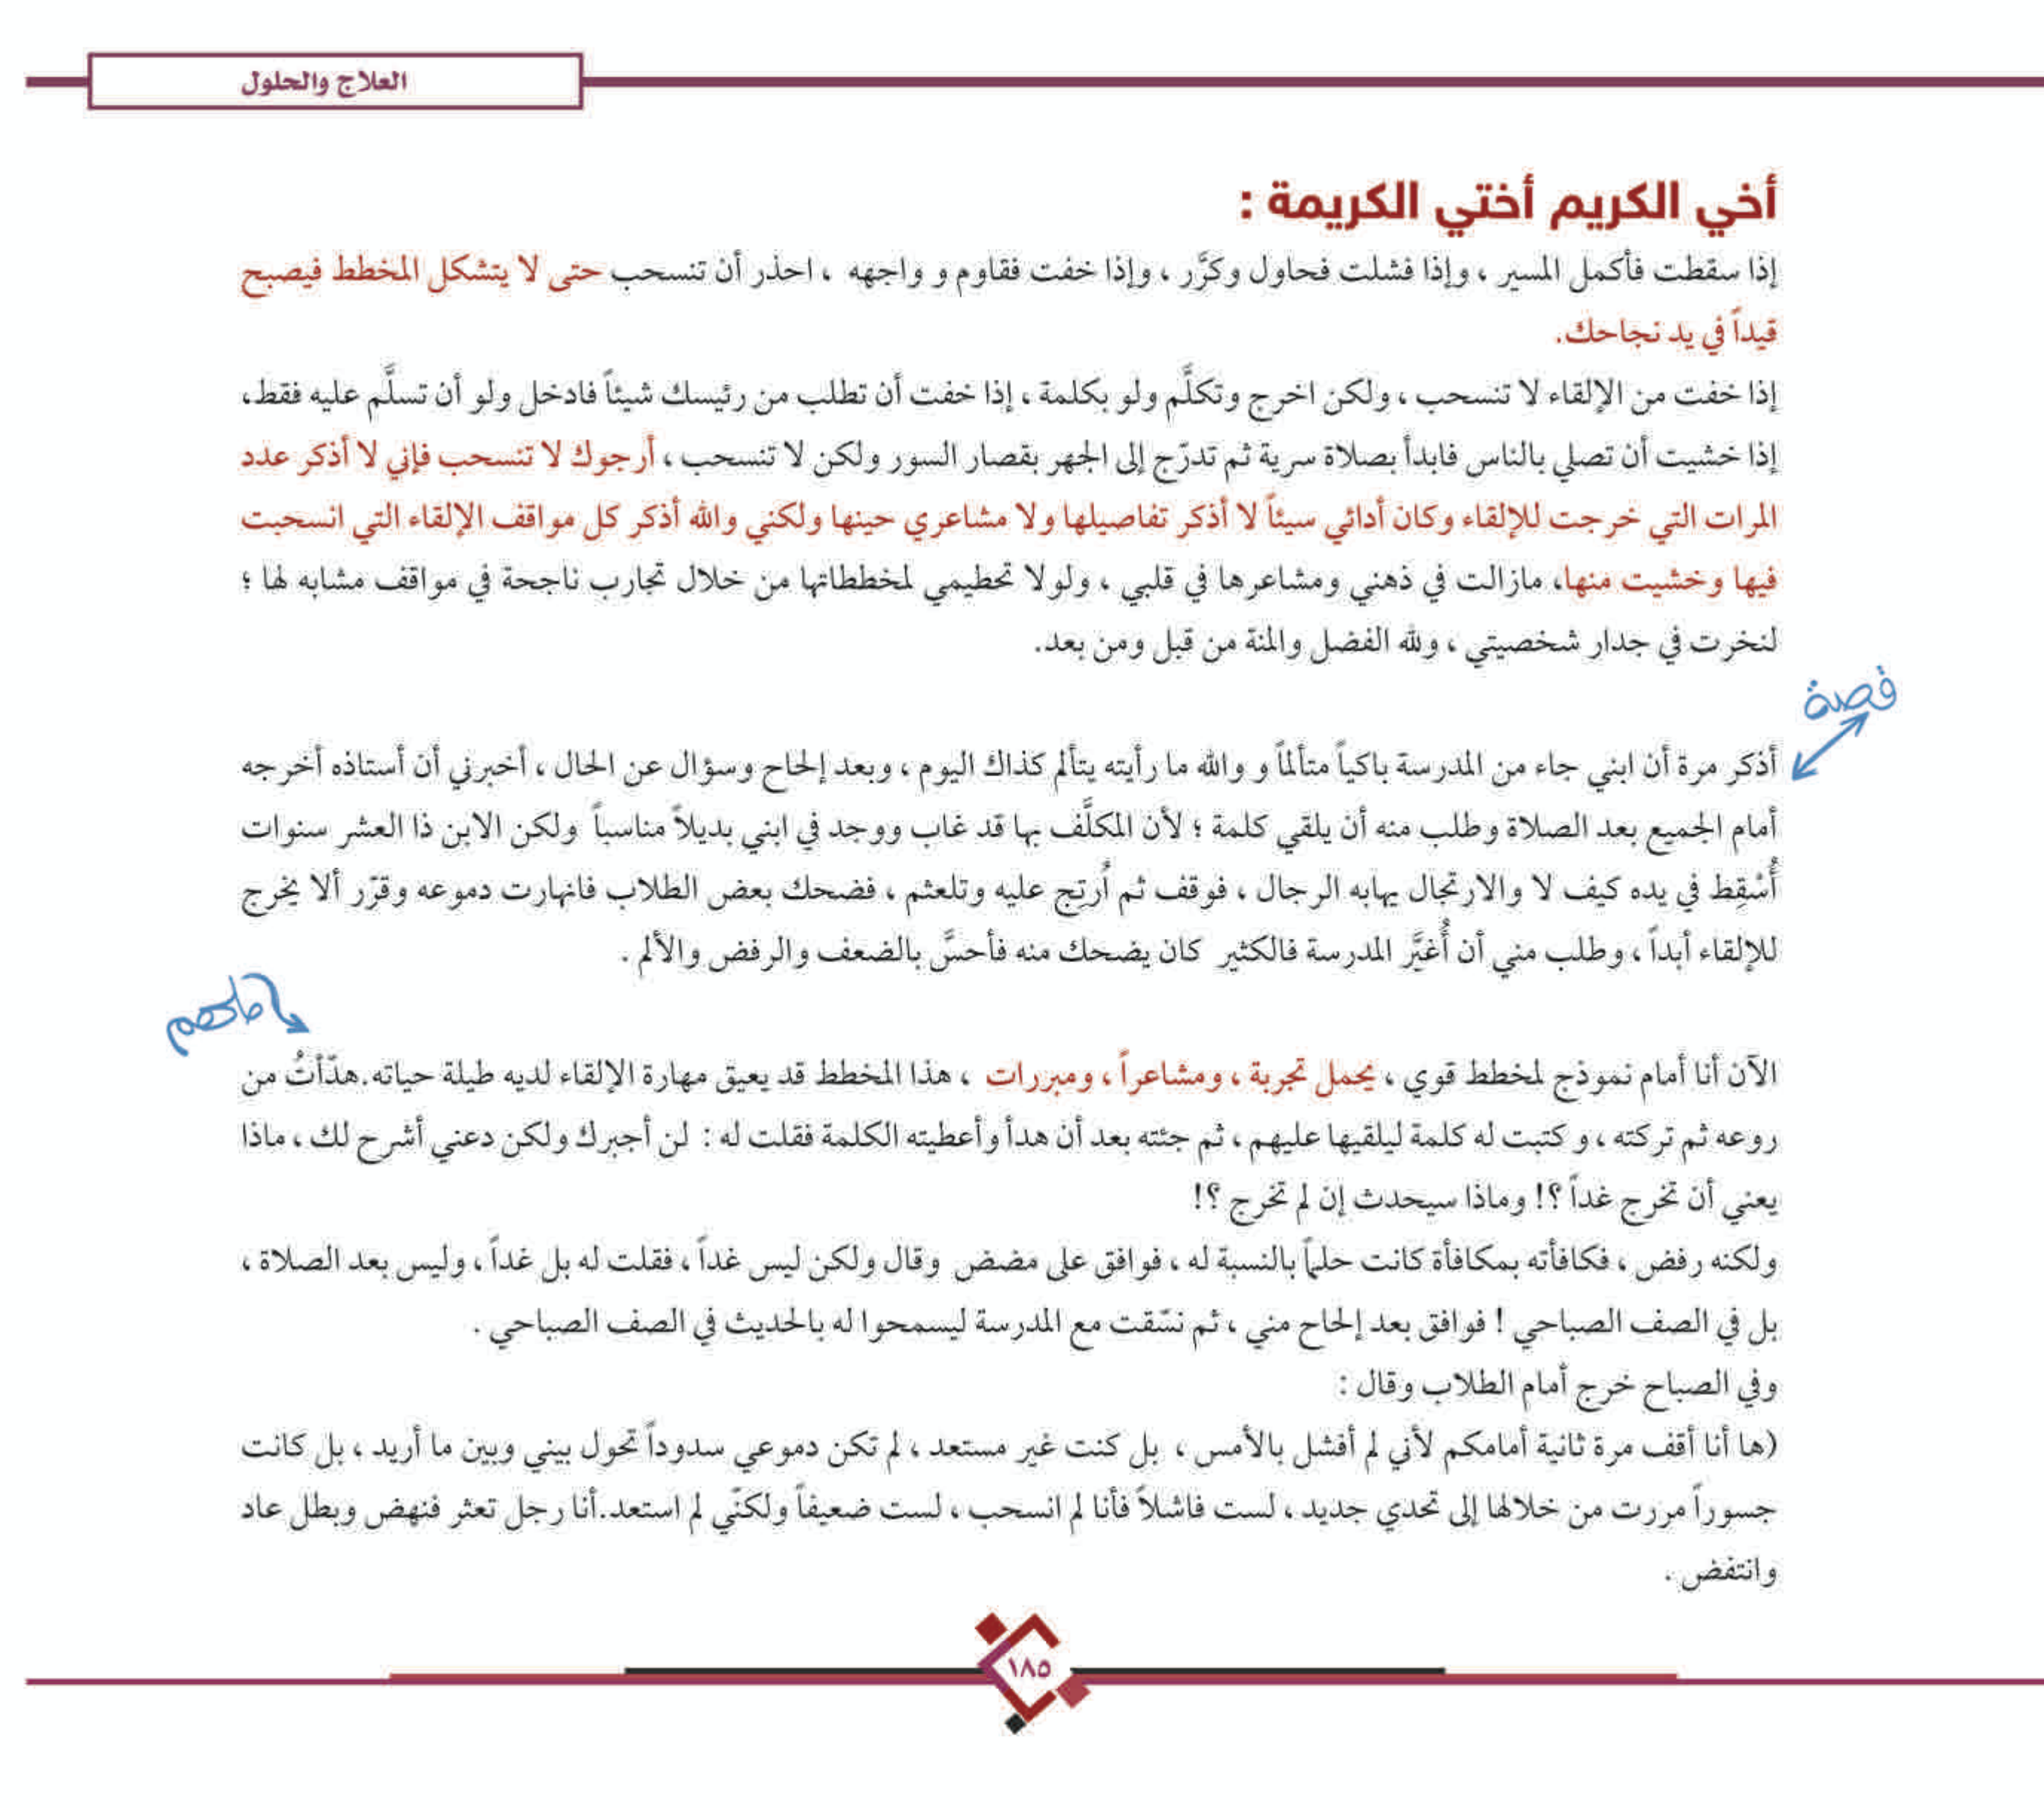 العلاج والحلول
أخي الكريم أختي الكريمة :
إذا سقطت فأكمل المسير ، وإذا فشلت فحاول وكرَّر ، وإذا خفت فقاوم و واجهه ، احذر أن تنسحب حتى لا يتشكل المخطط فيصبح
قيداً في يد نجاحك.
إذا خفت من الإلقاء لا تنسحب ، ولكن اخرج وتكلَّم ولو بكلمة ، إذا خفت أن تطلب من رئيسك شيئاً فادخل ولو أن تسلَّم عليه فقط،
إذا خشيت أن تصلي بالناس فابدأ بصلاة سرية ثم تدرّج إلى الجهر بقصار السور ولكن لا تنسحب ، أرجوك لا تنسحب فإني لا أذكر عدد
المرات التي خرجت للإلقاء وكان أدائي سيئاً لا أذكر تفاصيلها ولا مشاعري حينها ولكني والله أذكر كل مواقف الإلقاء التي انسحبت
فيها وخشيت منها، مازالت في ذهني ومشاعرها في قلبي ، ولولا تحطيمي لمخططاتها من خلال تجارب ناجحة في مواقف مشابه لها ؛
لنخرت في جدار شخصيتي ، ولله الفضل والمنة من قبل ومن بعد.
قصة
أذكر مرة أن ابني جاء من المدرسة باكياً متألماً و والله ما رأيته يتألم كذاك اليوم ، وبعد إلحاح وسؤال عن الحال ، أخبرني أن أستاذه أخرجه
أمام الجميع بعد الصلاة وطلب منه أن يلقي كلمة ؛ لأن المكلَّف بها قد غاب ووجد في ابني بديلاً مناسباً ولكن الابن ذا العشر سنوات
أُسْقِط في يده كيف لا والارتجال يهابه الرجال ، فوقف ثم أُرتِج عليه وتلعثم ، فضحك بعض الطلاب فانهارت دموعه وقرّر ألا يخرج
للإلقاء أبداً ، وطلب مني أن أُغيَّر المدرسة فالكثير كان يضحك منه فأحسَّ بالضعف والرفض والألم .
ملهم
الآن أنا أمام نموذج لمخطط قوي ، يحمل تجربة ، ومشاعراً ، ومبررات ، هذا المخطط قد يعيق مهارة الإلقاء لديه طيلة حياته.هدّأتُ من
روعه ثم تركته ، و كتبت له كلمة ليلقيها عليهم ، ثم جئته بعد أن هدأ وأعطيته الكلمة فقلت له : لن أجبرك ولكن دعني أشرح لك ، ماذا
يعني أن تخرج غداً ؟! وماذا سيحدث إن لم تخرج ؟!
ولكنه رفض ، فكافأته بمكافأة كانت حلماً بالنسبة له ، فوافق على مضض وقال ولكن ليس غداً ، فقلت له بل غداً ، وليس بعد الصلاة ،
بل في الصف الصباحي ! فوافق بعد إلحاح مني ، ثم نسّقت مع المدرسة ليسمحوا له بالحديث في الصف الصباحي .
وفي الصباح خرج أمام الطلاب وقال :
(ها أنا أقف مرة ثانية أمامكم لأني لم أفشل بالأمس ، بل كنت غير مستعد ، لم تكن دموعي سدوداً تحول بيني وبين ما أريد ، بل كانت
جسوراً مررت من خلالها إلى تحدي جديد ، لست فاشلاً فأنا لم انسحب ، لست ضعيفاً ولكنّي لم استعد.أنا رجل تعثر فنهض وبطل عاد
وانتفض .
١٨٥